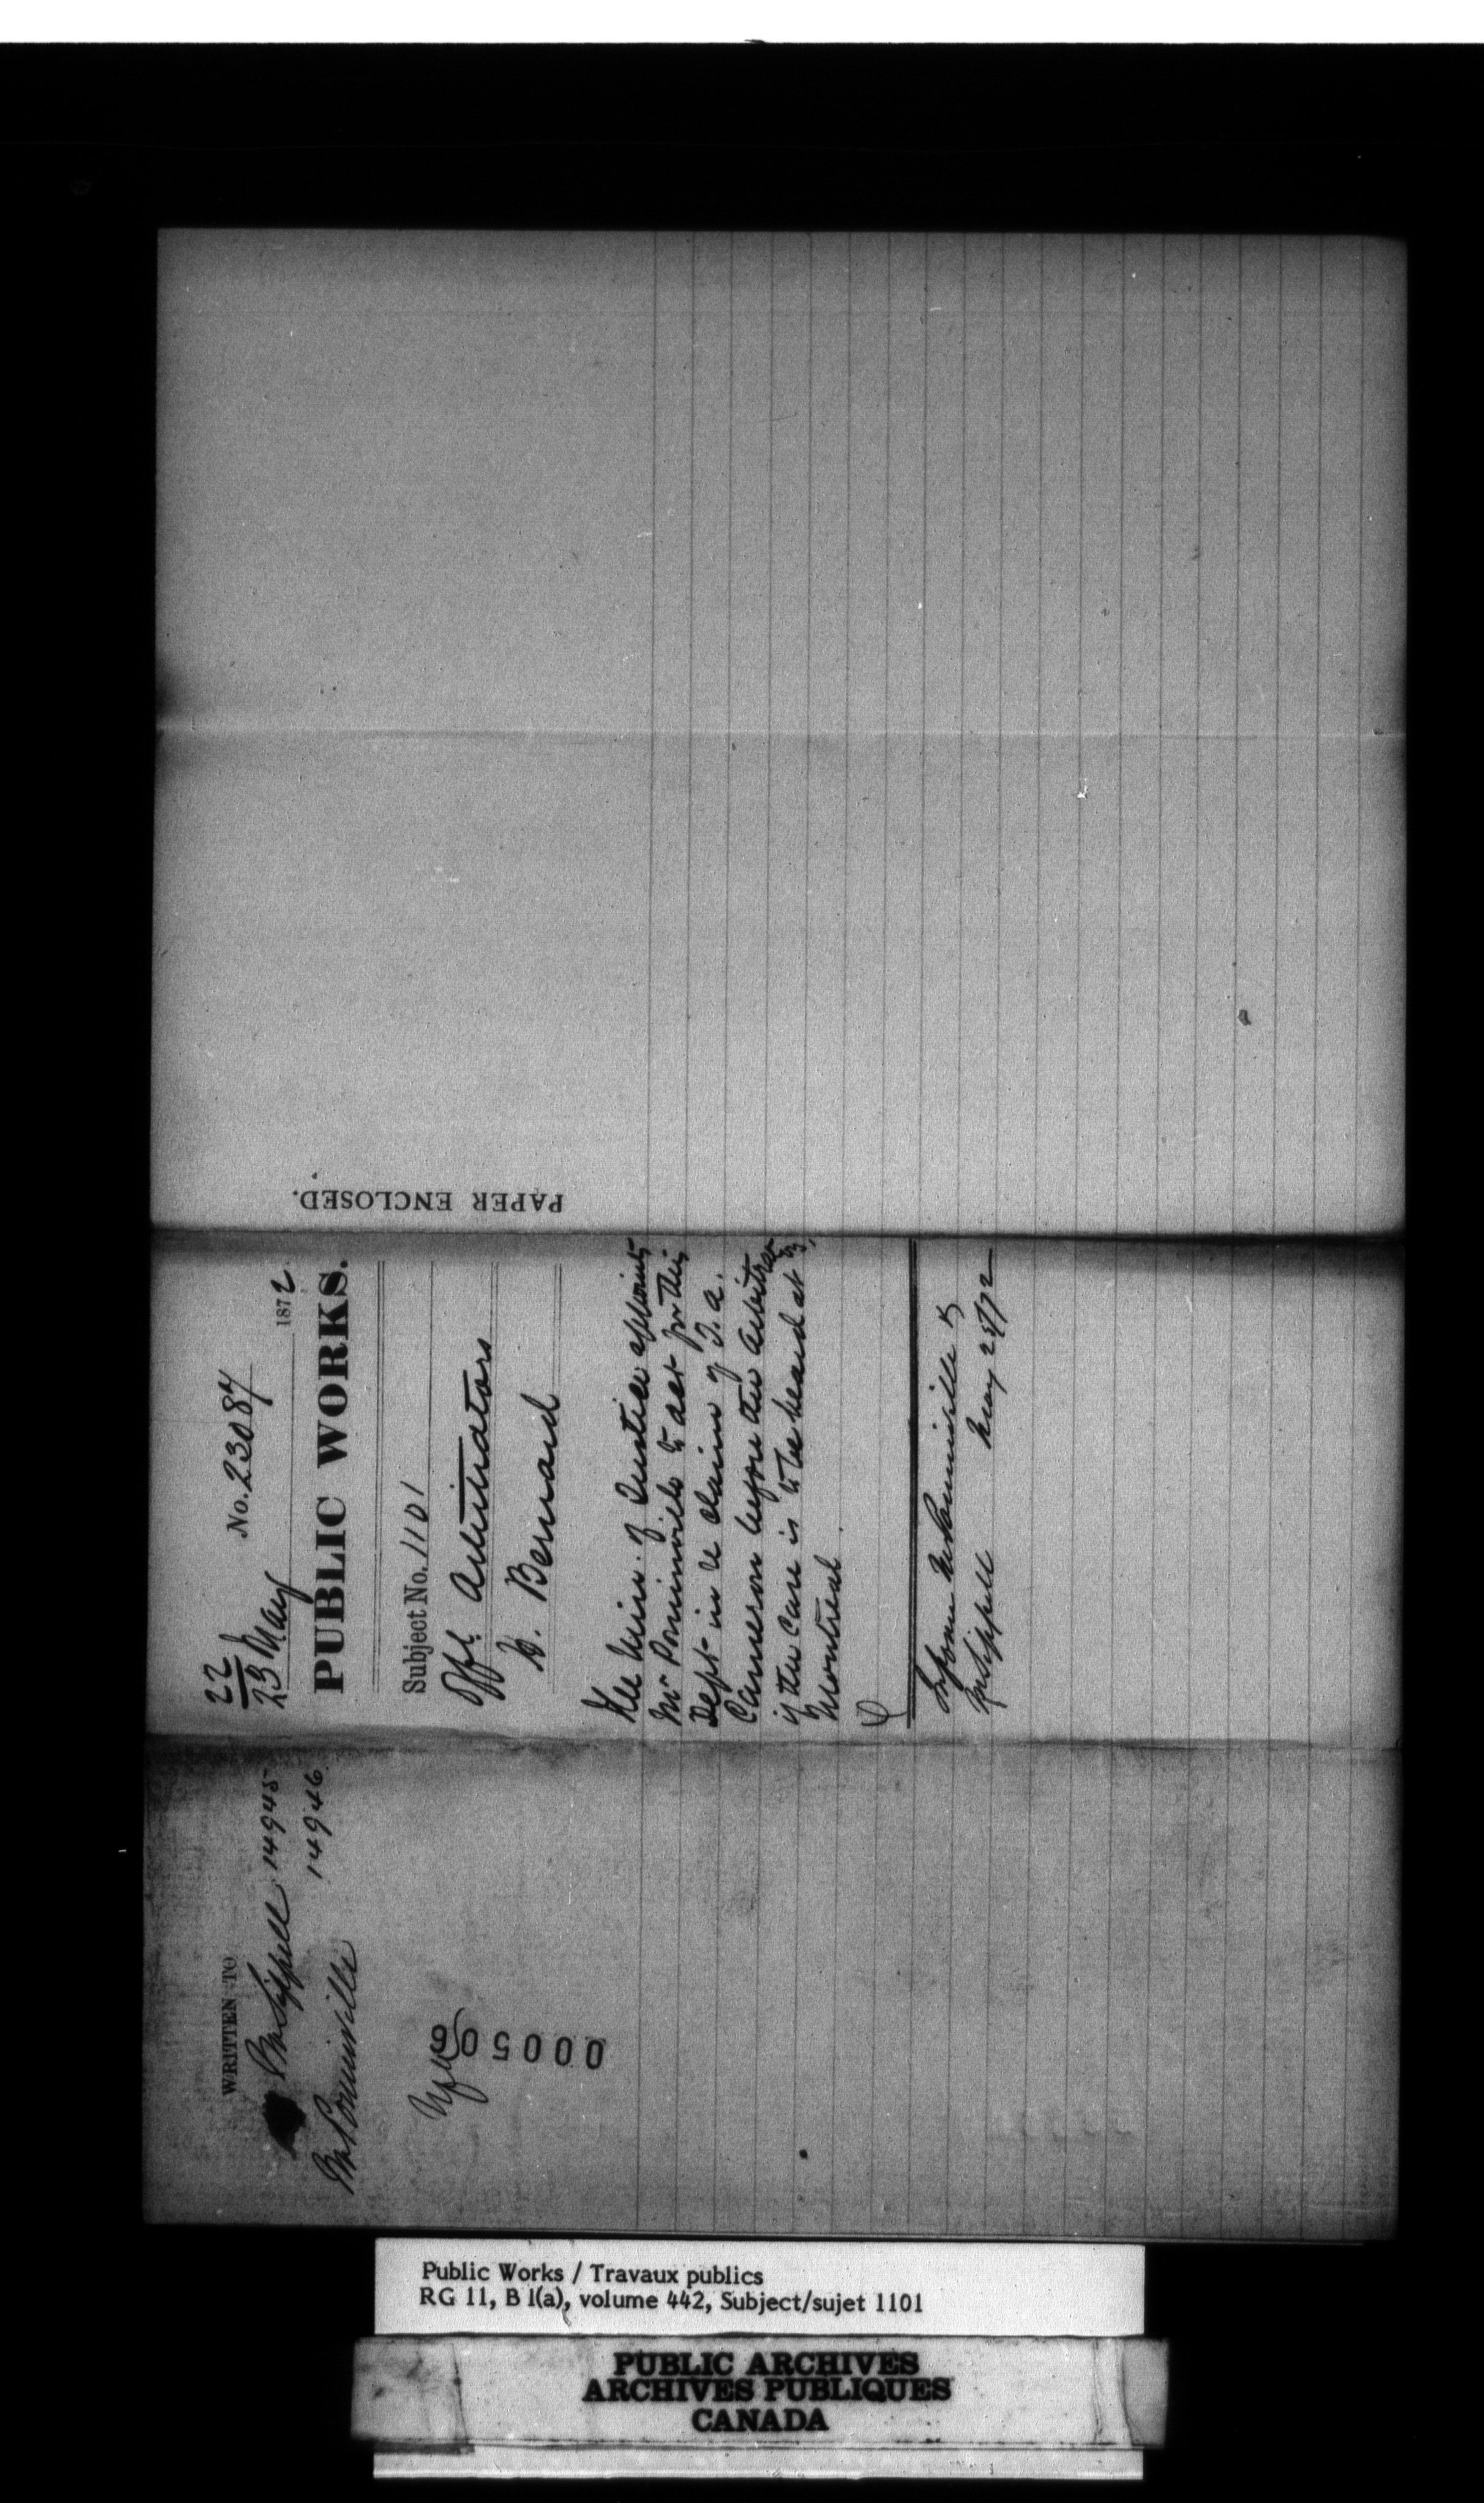 22
23 May No. 23087
1872
PUBLIC WORKS.
Subject No. 1101
Offl. Arbitrators
H. Bernard
The Min. of Justice appoints
Mr Pominville to act for this
Dept in re claim of J. A.
Cameron before the Arbitrators
if the case is to be heard at
Montreal.
Inform Mr Pominville &
Mr Sippell May 25/72
PAPER ENCLOSED.
WRITTEN TO
Mr Sippell 14945
Mr Pominville 14946
000506
Public Works / Travaux publics
RG 11, B 1(a), volume 442, Subject/sujet 1101
PUBLIC ARCHIVES
ARCHIVES PUBLIQUES
CANADA